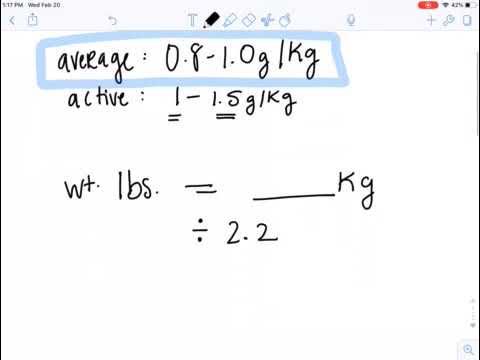 1:17 PM Wed Feb 20 42%
T
average: 0.8-1.0g/Kg
active: 1-1.5g/Kg
wt. lbs. = ____ Kg
÷ 2.2